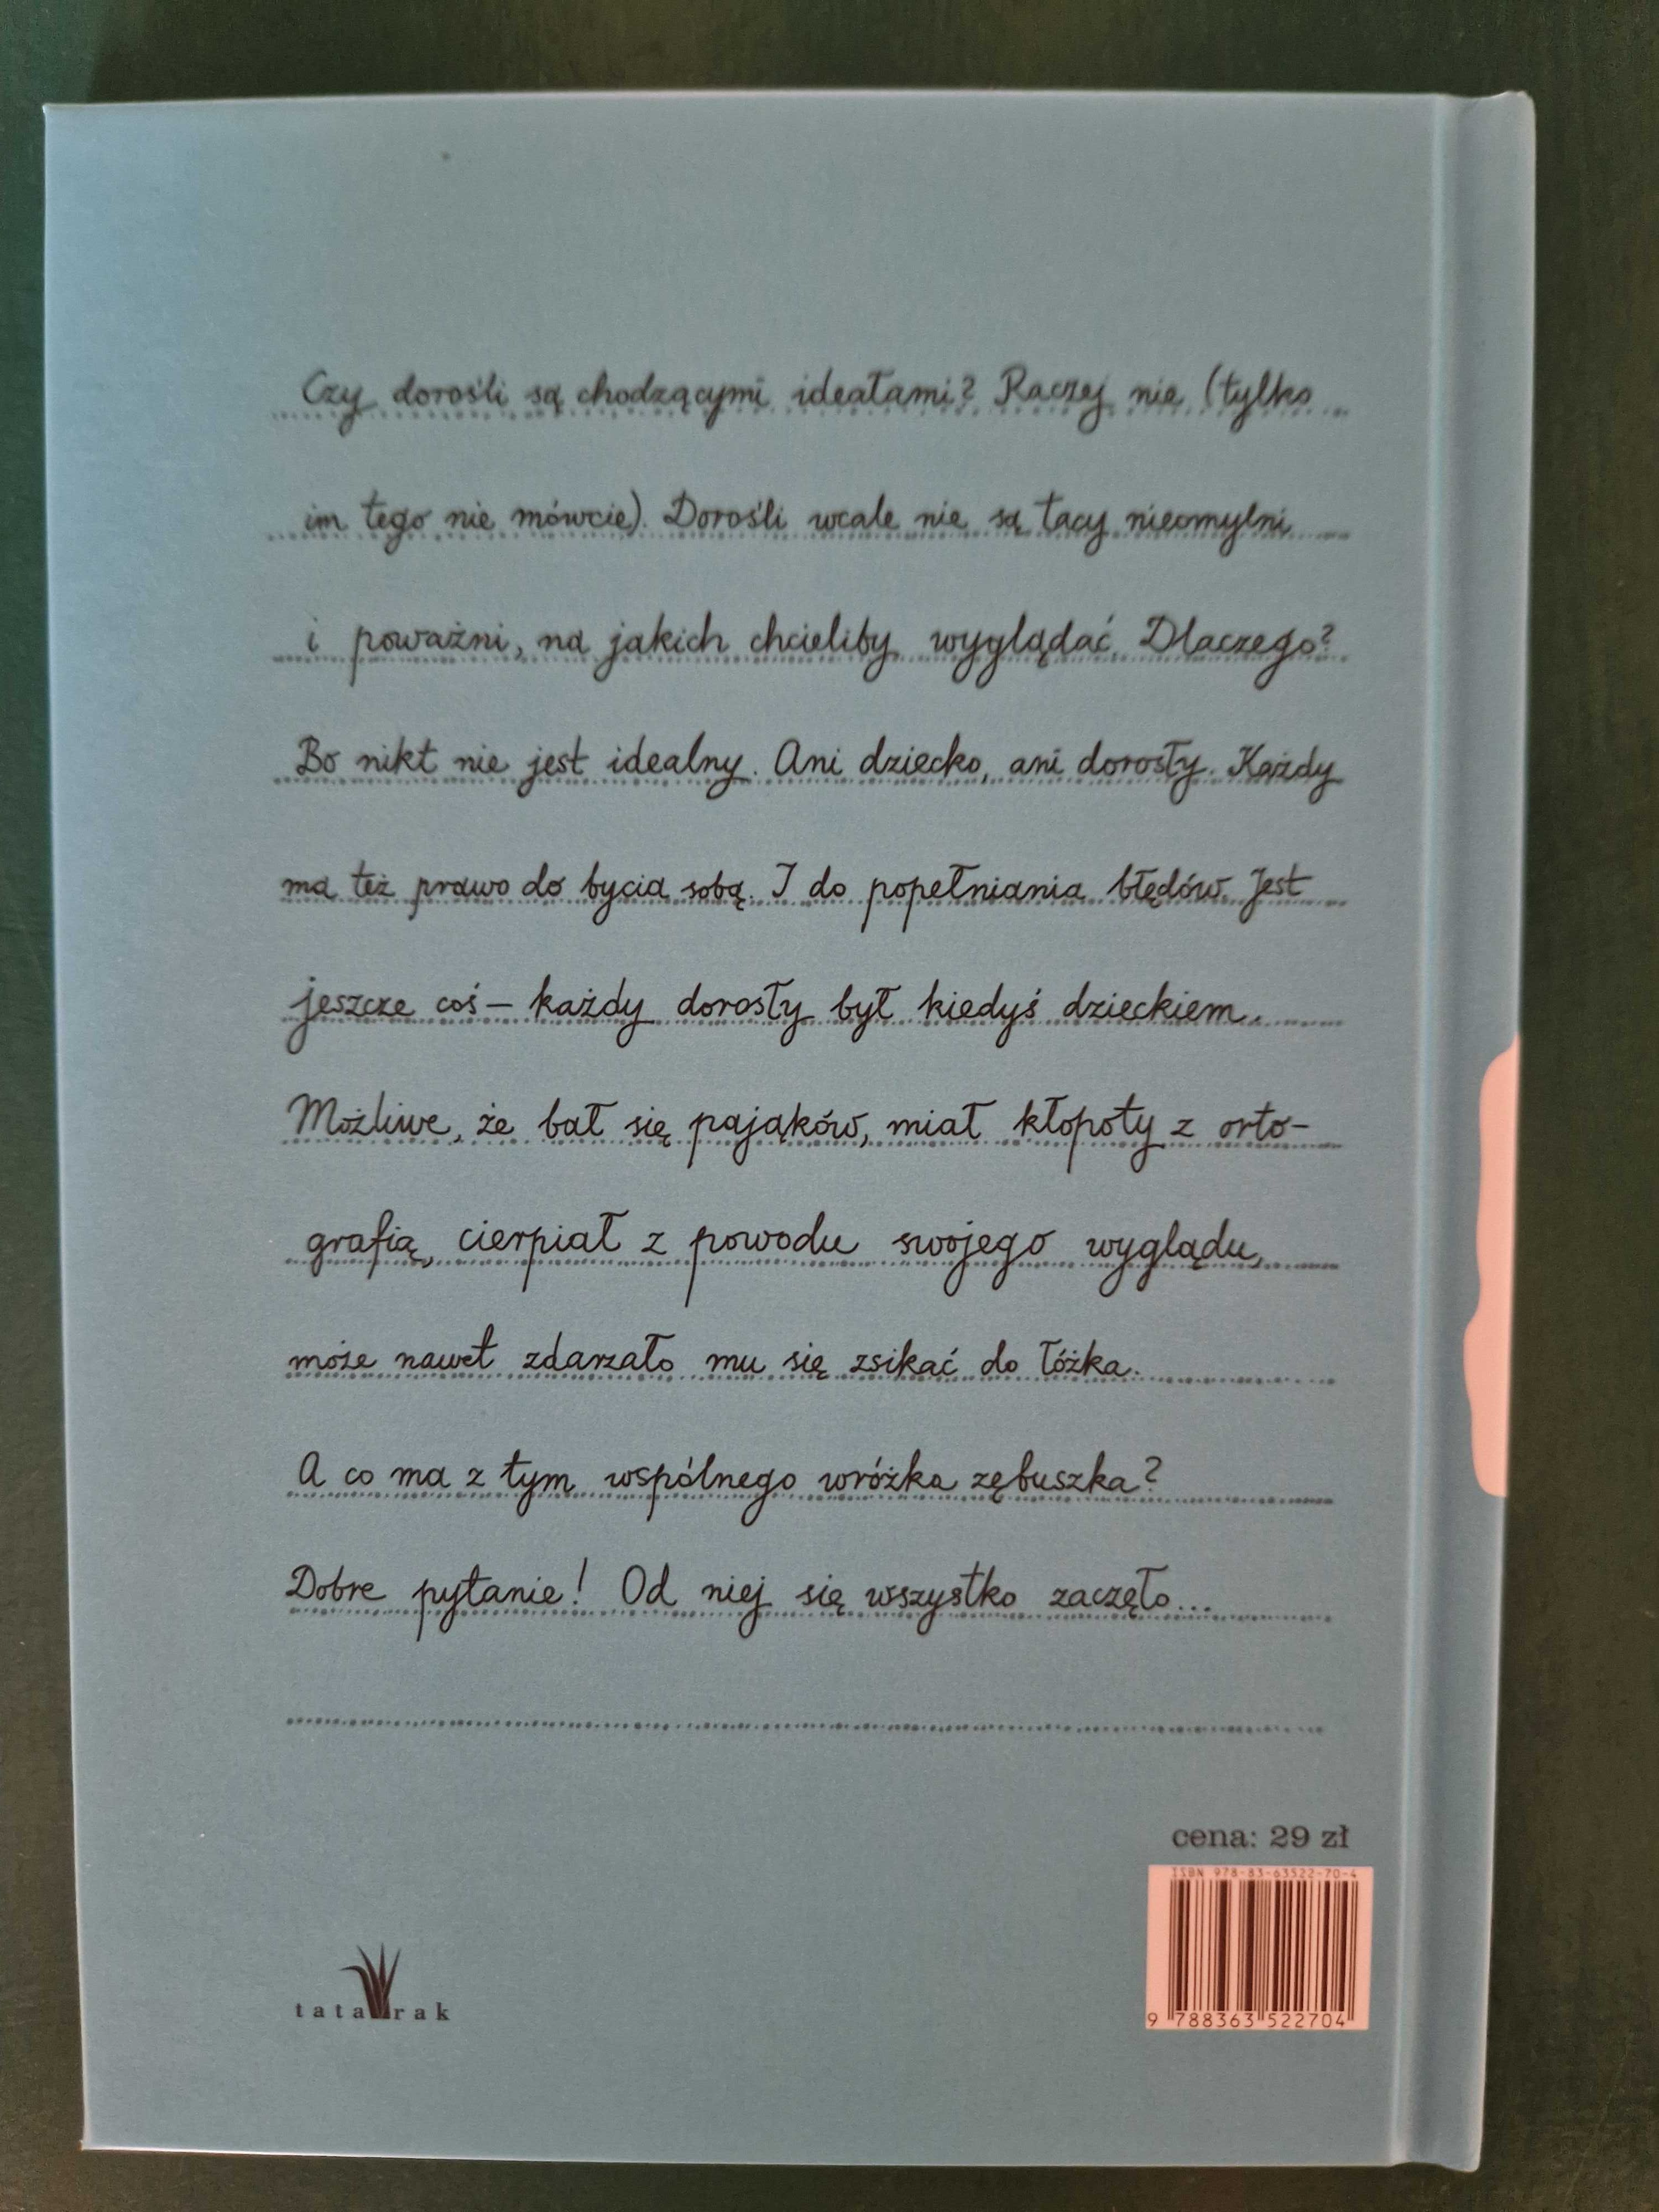 Czy dorośli są chodzącymi ideałami? Raczej nie (tylko
im tego nie mówcie). Dorośli wcale nie są tacy nieomylni
i poważni, na jakich chcieliby wyglądać. Dlaczego?
Bo nikt nie jest idealny. Ani dziecko, ani dorosły. Każdy
ma też prawo do bycia sobą. I do popełniania błędów. Jest
jeszcze coś – każdy dorosły był kiedyś dzieckiem.
Możliwe, że bał się pająków, miał kłopoty z orto-
grafią, cierpiał z powodu swojego wyglądu,
może nawet zdarzało mu się zsikać do łóżka.
A co ma z tym wspólnego wróżka zębuszka?
Dobre pytanie! Od niej się wszystko zaczęło...
cena: 29 zł
ISBN 978-83-63522-70-4
9 788363 522704
tatarak